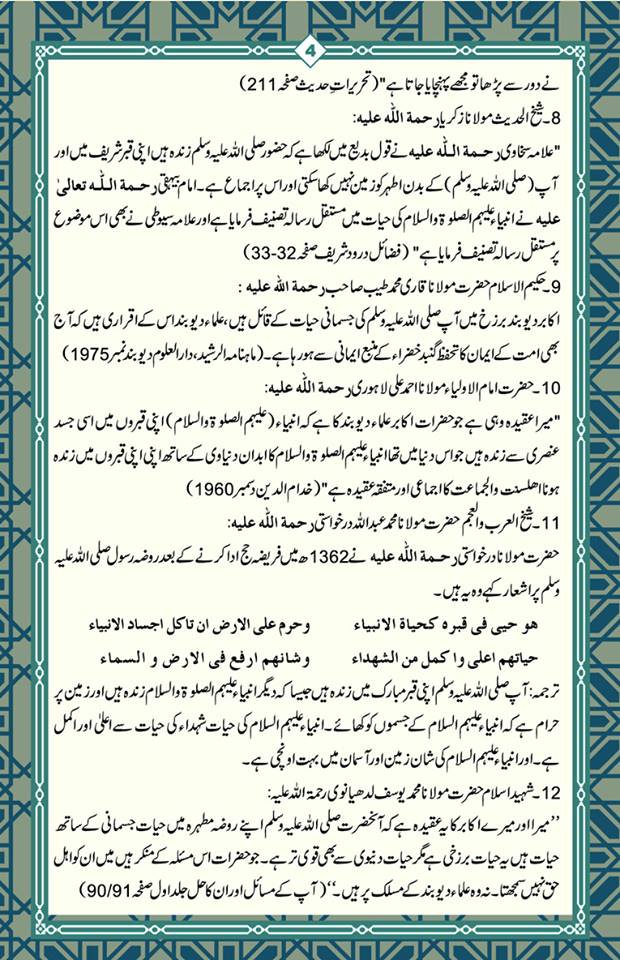 4
نے دور سے پڑھا تو مجھے پہنچایا جاتا ہے" (تحریراتِ حدیث صفحہ 211)
8۔ شیخ الحدیث مولانا زکریا رحمة اللّٰه علیه:
"علامہ سخاوی رحمة اللّٰه علیه نے قول بدیع میں لکھا ہے کہ حضور صلی اللہ علیہ وسلم زندہ ہیں اپنی قبر شریف میں اور
آپ (صلی اللہ علیہ وسلم) کے بدن اطہر کو زمین نہیں کھا سکتی اور اس پر اجماع ہے۔ امام بیہقی رحمة اللّٰه تعالیٰ
علیه نے انبیاء علیہم الصلوۃ والسلام کی حیات میں مستقل رسالہ تصنیف فرمایا ہے اور علامہ سیوطی نے بھی اس موضوع
پر مستقل رسالہ تصنیف فرمایا ہے" (فضائل درود شریف صفحہ 32-33)
9۔ حکیم الاسلام حضرت مولانا قاری محمد طیب صاحب رحمة اللّٰه علیه :
اکابر دیوبند برزخ میں آپ صلی اللہ علیہ وسلم کی جسمانی حیات کے قائل ہیں، علماء دیوبند اس کے اقراری ہیں کہ آج
بھی امت کے ایمان کا تحفظ گنبد خضراء کے منبع ایمانی سے ہو رہا ہے۔ (ماہنامہ الرشید، دارالعلوم دیوبند نمبر 1975)
10۔ حضرت امام الاولیاء مولانا احمد علی لاہوری رحمة اللّٰه علیه:
"میرا عقیدہ وہی ہے جو حضرات اکابر علماء دیوبند کا ہے کہ انبیاء (علیہم الصلوۃ والسلام) اپنی قبروں میں اسی جسد
عنصری سے زندہ ہیں جو اس دنیا میں تھا انبیاء علیہم الصلوۃ والسلام کا ابدان دنیاوی کے ساتھ اپنی اپنی قبروں میں زندہ
ہونا اہلسنت والجماعت کا اجماعی اور متفقہ عقیدہ ہے" (خدام الدین دسمبر 1960)
11۔ شیخ العرب والعجم حضرت مولانا محمد عبداللہ درخواستی رحمة اللّٰه علیه:
حضرت مولانا درخواستی رحمة اللّٰه علیه نے 1362ھ میں فریضہ حج ادا کرنے کے بعد روضہ رسول صلی اللہ علیہ
وسلم پر اشعار کہے وہ یہ ہیں۔
هو حيى فى قبره كحياة الانبياء وحرم على الارض ان تاكل اجساد الانبياء
حياتهم اعلى واكمل من الشهداء وشانهم ارفع فى الارض و السماء
ترجمہ: آپ صلی اللہ علیہ وسلم اپنی قبر مبارک میں زندہ ہیں جیسا کہ دیگر انبیاء علیہم الصلوۃ والسلام زندہ ہیں اور زمین پر
حرام ہے کہ انبیاء علیہم السلام کے جسموں کو کھائے۔ انبیاء علیہم السلام کی حیات شہداء کی حیات سے اعلیٰ اور اکمل
ہے۔ اور انبیاء علیہم السلام کی شان زمین اور آسمان میں بہت اونچی ہے۔
12۔ شہید اسلام حضرت مولانا محمد یوسف لدھیانوی رحمۃ اللہ علیہ:
”میرا اور میرے اکابر کا یہ عقیدہ ہے کہ آنحضرت صلی اللہ علیہ وسلم اپنے روضہ مطہرہ میں حیات جسمانی کے ساتھ
حیات ہیں یہ حیات برزخی ہے مگر حیات دنیوی سے بھی قوی تر ہے۔ جو حضرات اس مسئلہ کے منکر ہیں میں ان کو اہل
حق نہیں سمجھتا۔ نہ وہ علماء دیوبند کے مسلک پر ہیں۔“ (آپ کے مسائل اور ان کا حل جلد اول صفحہ 90/91)